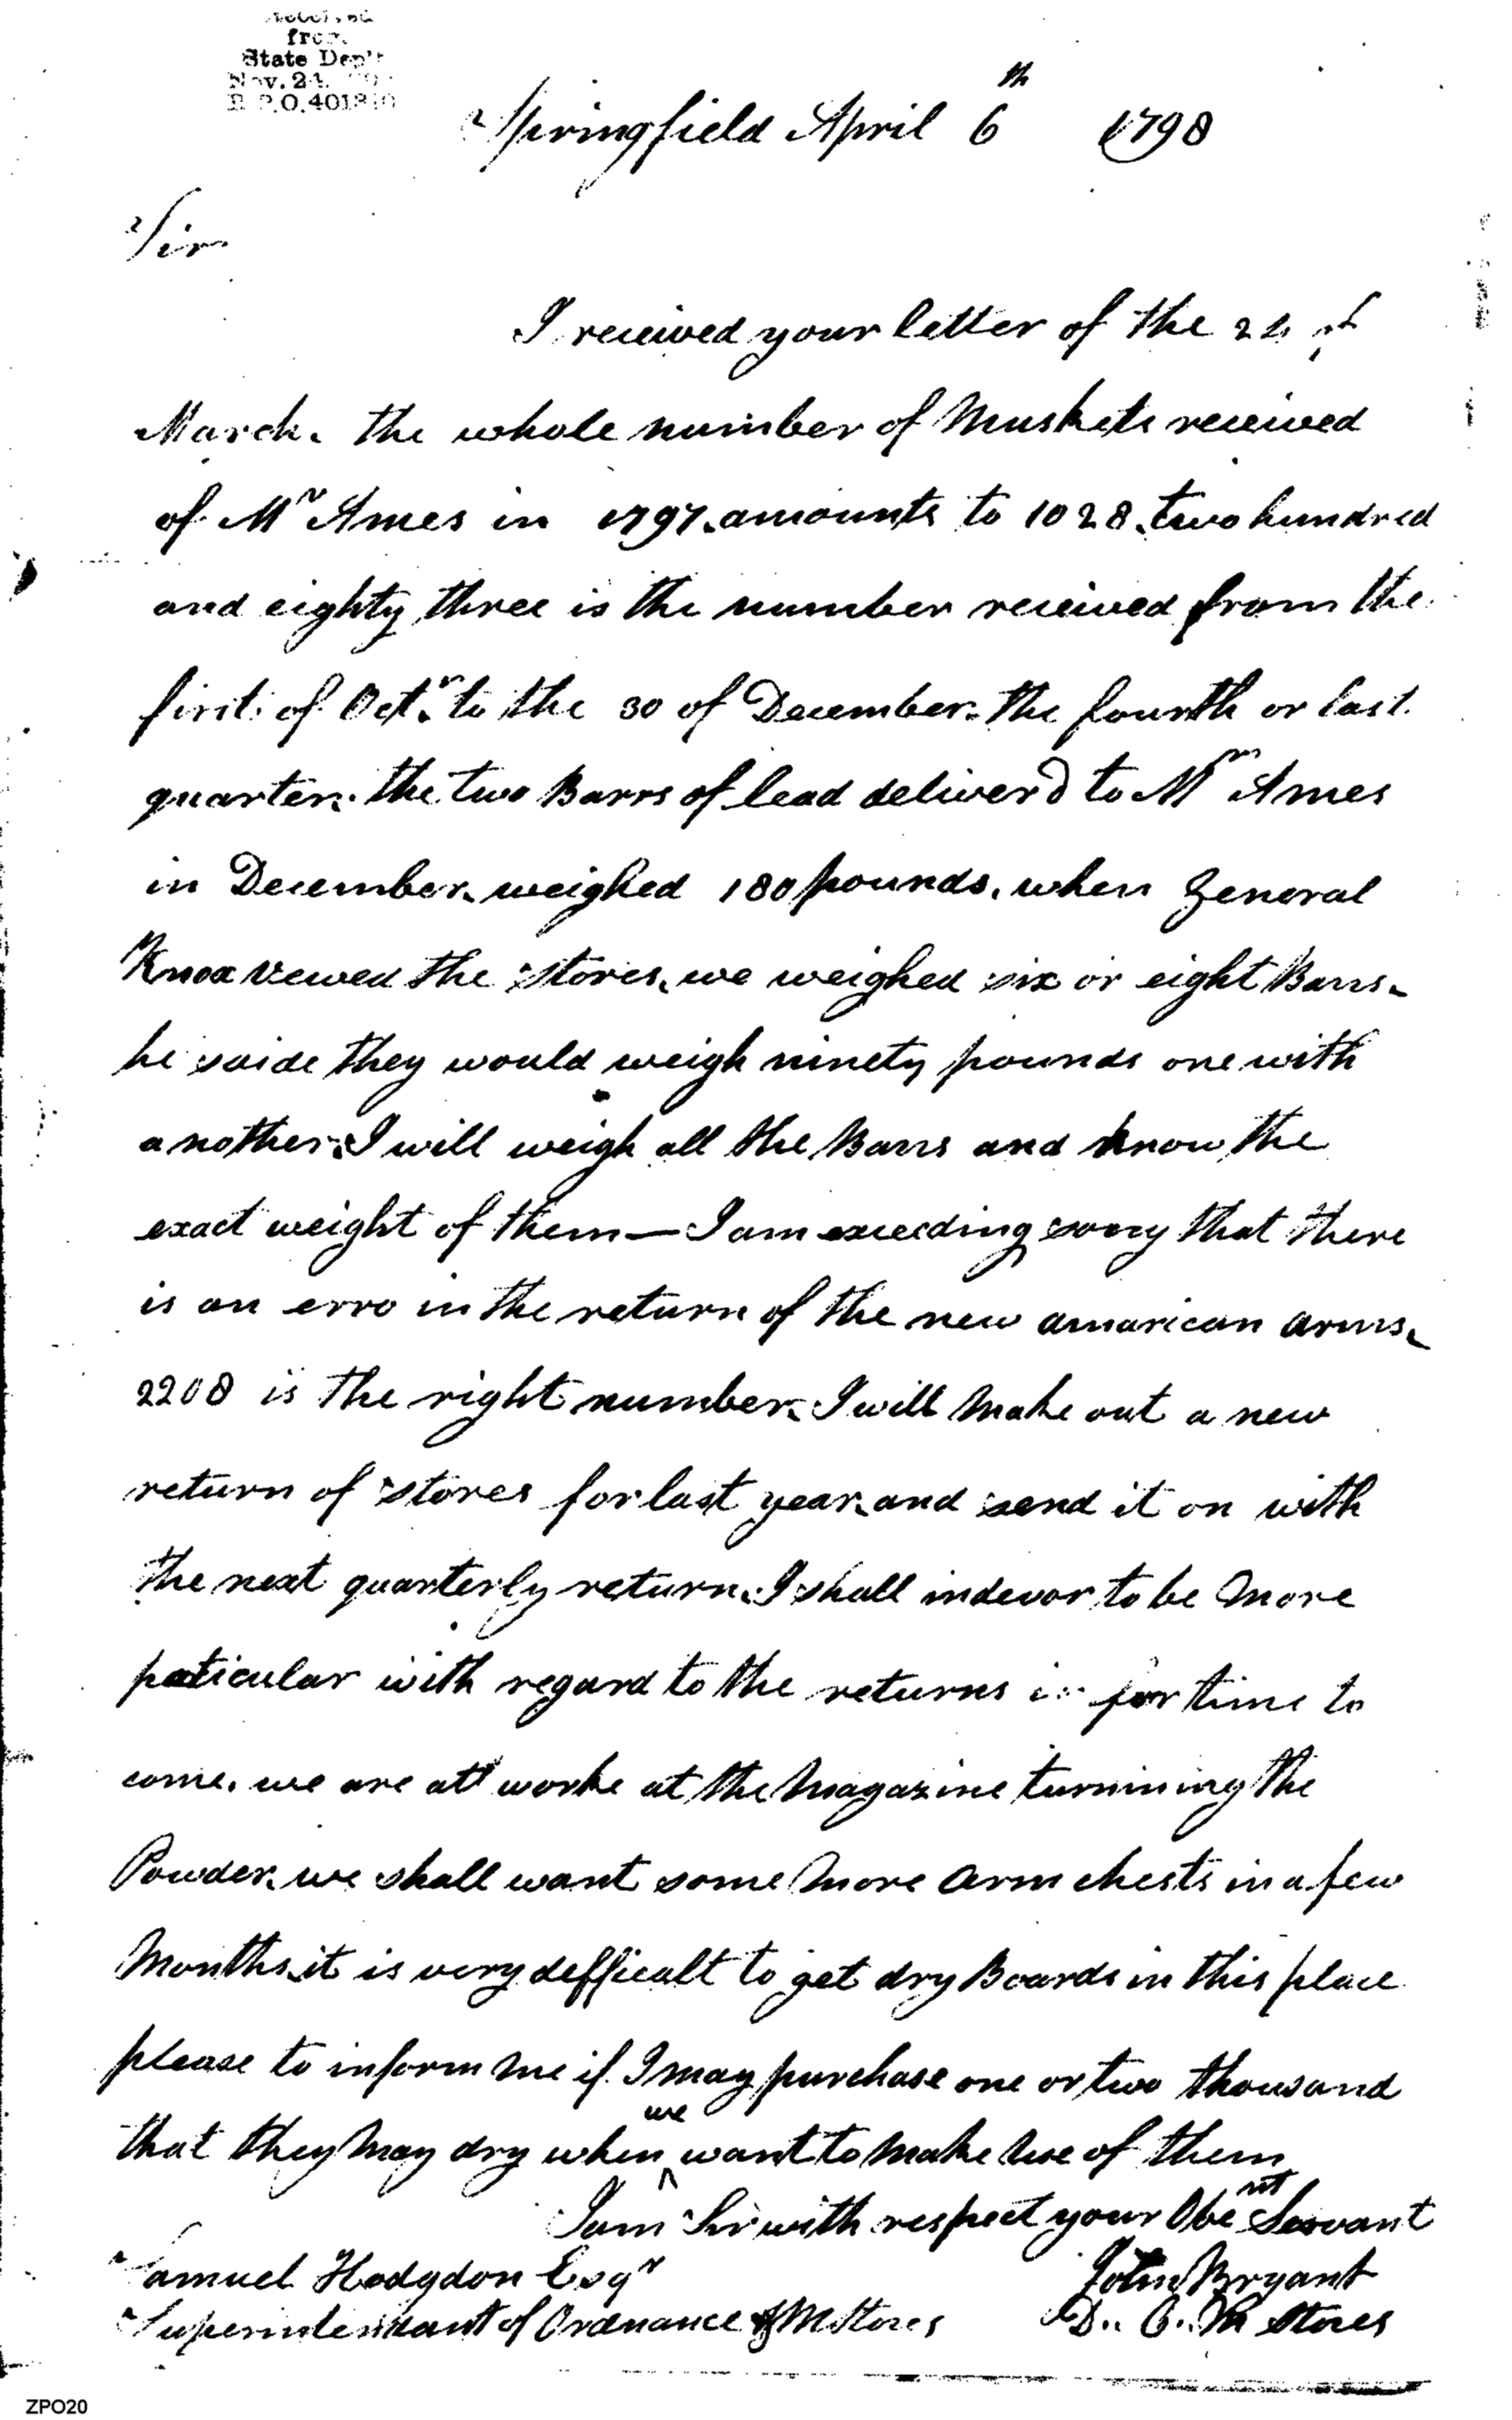 Received
from
State Dep't
Nov. 24
Springfield April 6th 1798
Sir
I received your letter of the
March. the whole number of Muskets received
of Mr Ames in 1797. amounts to 1028. two hundred
and eighty three is the number received from the
first of Octr. to the 30 of December. the fourth or last
quarter. the two Barrs of lead deliverd to Mr Ames
in December. weighed 180 pounds. when General
Knox vewed the stores. we weighed six or eight Barrs.
he saide they would weigh ninety pounds one with
another. I will weigh all the Barrs and know the
exact weight of them — I am exceeding sorry that there
is an erro in the return of the new amarican arms.
2208 is the right number. I will make out a new
return of stores for last year. and send it on with
the next quarterly return. I shall indevor to be more
paticular with regard to the returns for time to
come. we are att worke at the Magazine turnining the
Powder. we shall want some more arm chests in a few
Months. it is very defficalt to get dry Boards in this place
please to inform me if I may purchase one or two thousand
that they may dry when we want to make use of them
I am Sir with respect your Obent Servant
Samuel Hodgdon Esqr John Bryant
Superintendant of Ordnance & M Stores D.. C.. M Stores
ZPO20